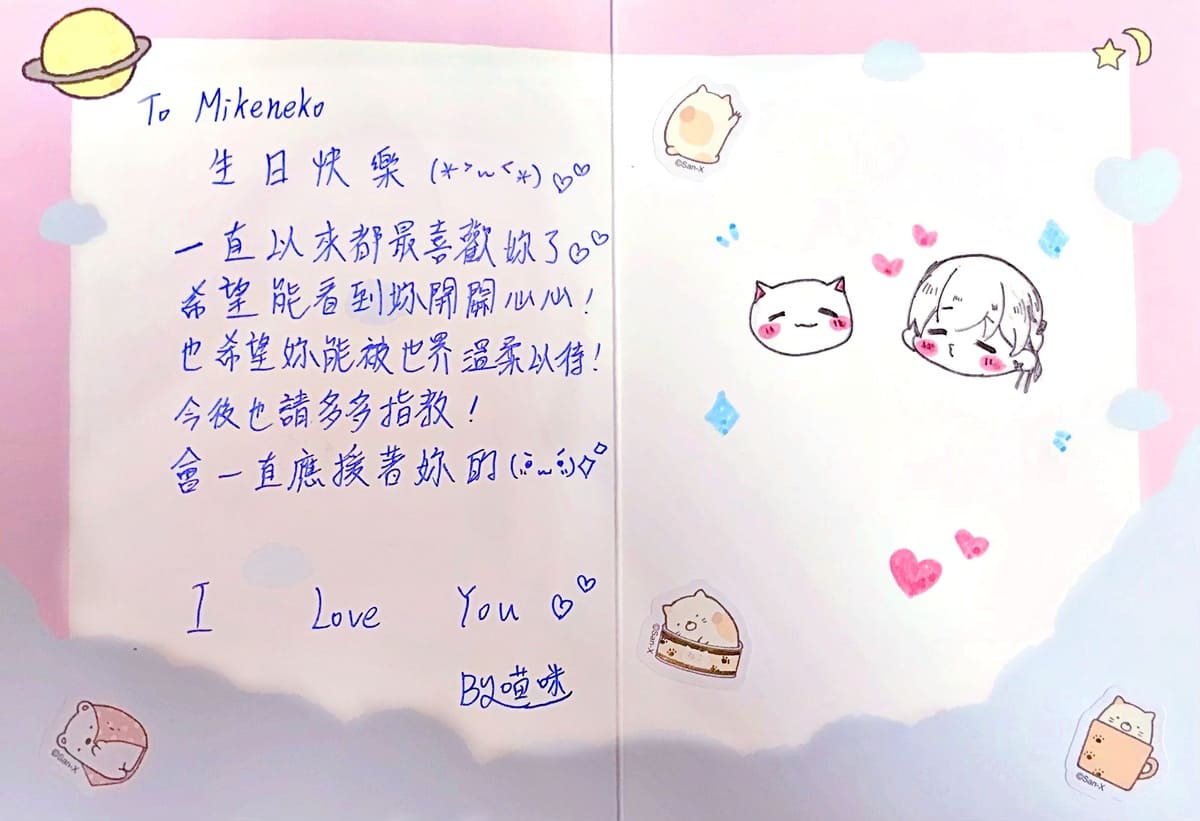 To Mikeneko
生日快樂 (*>~<*) ♡♡
一直以來都最喜歡妳了♡♡
希望能看到妳開開心心!
也希望妳能被世界溫柔以待!
今後也請多多指教!
會一直應援著妳的
I Love You ♡♡
By喵咪
©San-X
©San-X
©San-X
©San-X